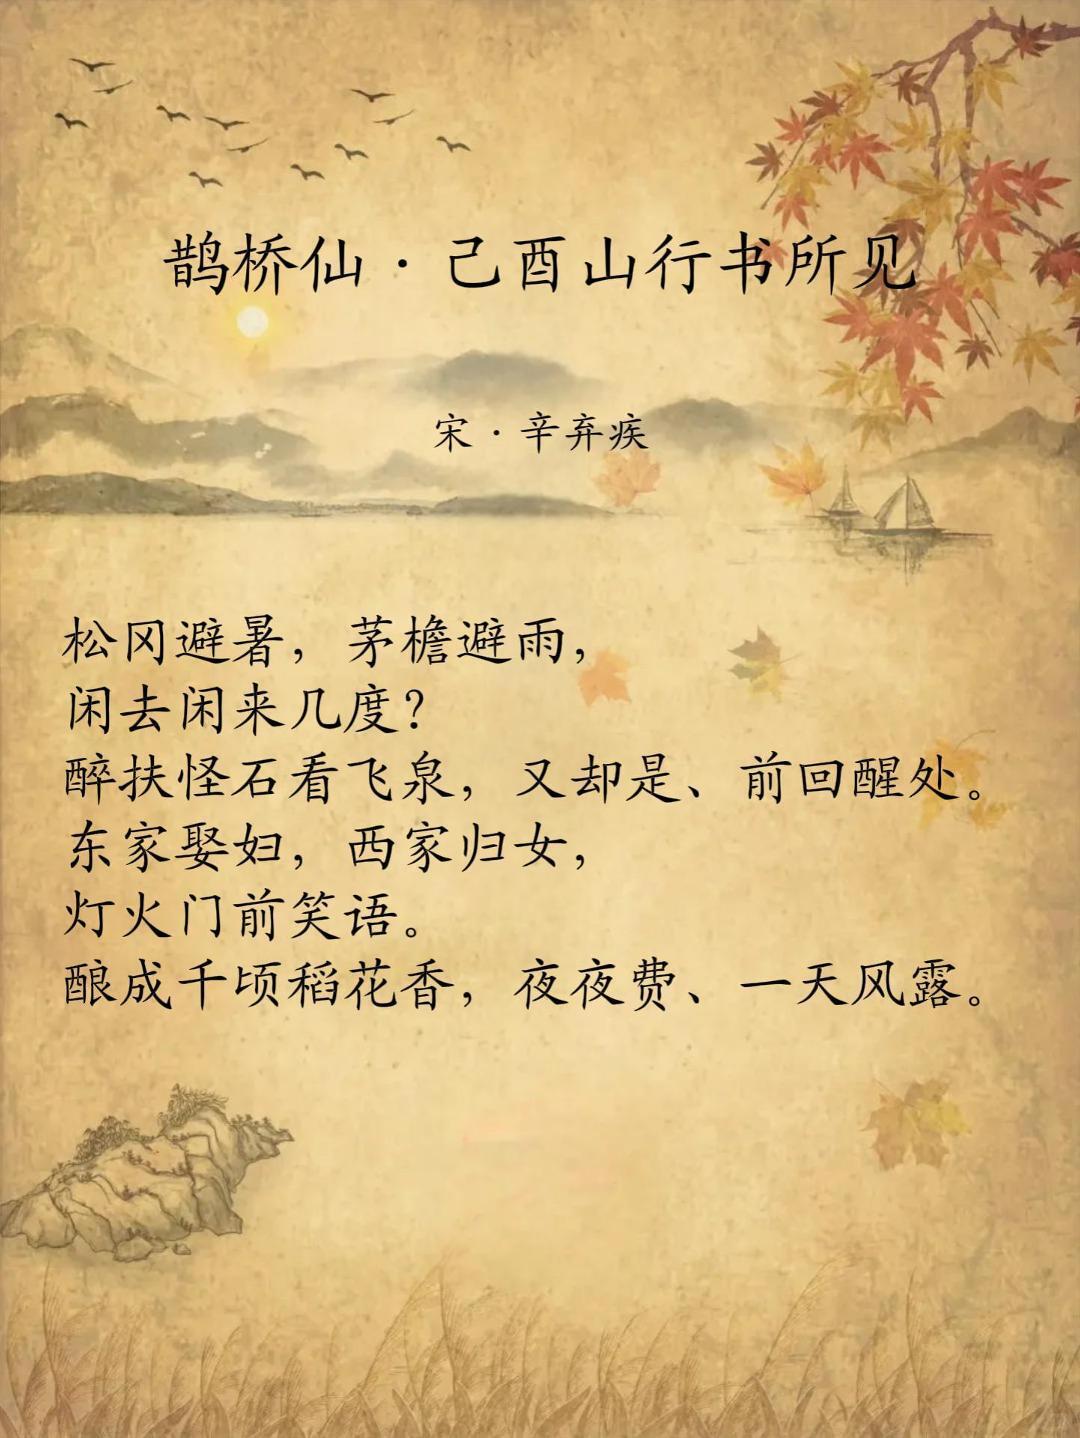 鹊桥仙·己酉山行书所见
宋·辛弃疾
松冈避暑，茅檐避雨，
闲去闲来几度？
醉扶怪石看飞泉，又却是、前回醒处。
东家娶妇，西家归女，
灯火门前笑语。
酿成千顷稻花香，夜夜费、一天风露。